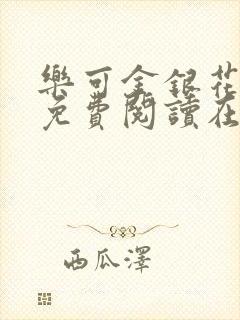 樂可金銀花
免費閱讀在
西瓜澤